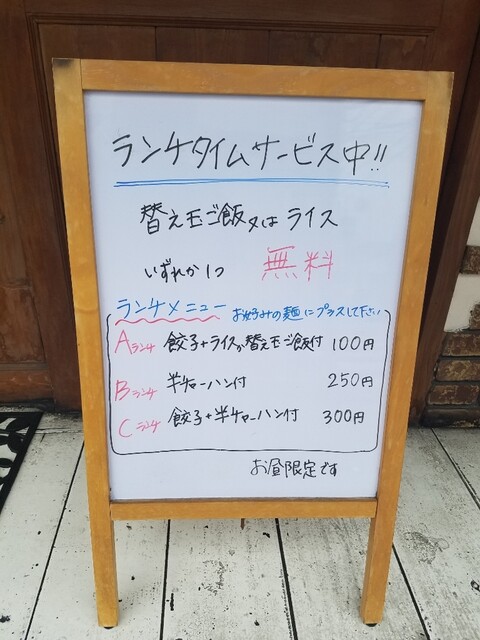 ランチタイムサービス中!!
替え玉ご飯又はライス
いずれか1つ 無料
ランチメニュー お好みの麺にプラスして下さい
Aランチ 餃子+ライスか替え玉ご飯付 100円
Bランチ 半チャーハン付 250円
Cランチ 餃子+半チャーハン付 300円
お昼限定です